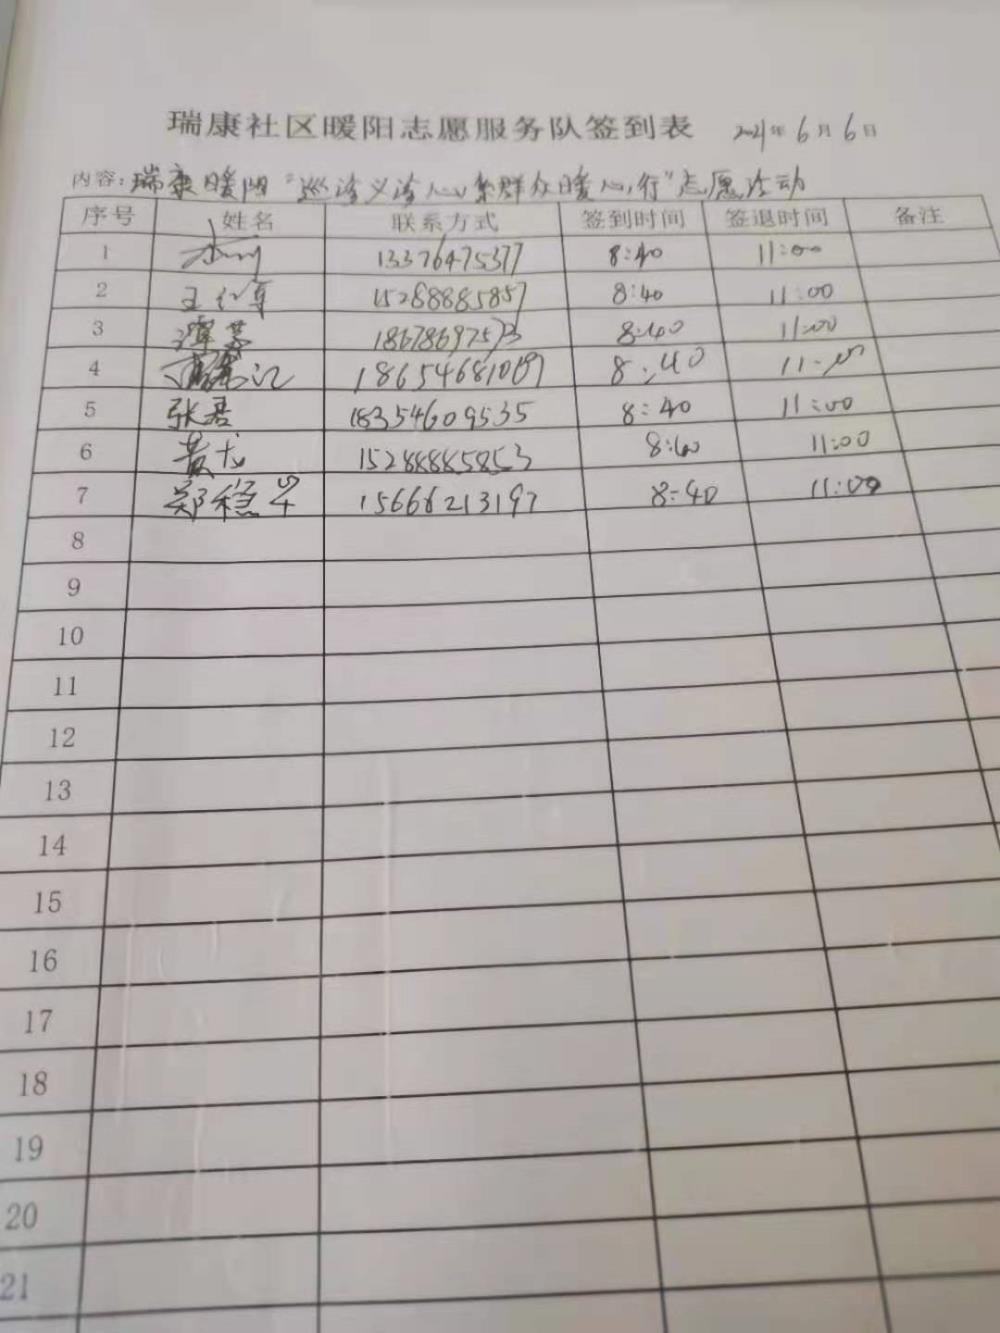 瑞康社区暖阳志愿服务队签到表 2021年6月6日
内容:瑞康暖阳"巡诊义诊心系群众暖心行"志愿活动
序号 姓名 联系方式 签到时间 签退时间 备注
1 13376475377 8:40 11:00
2 15288885857 8:40 11:00
3 8:40 11:00
4 8:40
5 张君 18354609535 8:40 11:00
6 黄龙 15288885853 8:40 11:00
7 郑稳军 15666213197 8:40 11:00
8
9
10
11
12
13
14
15
16
17
18
19
20
21